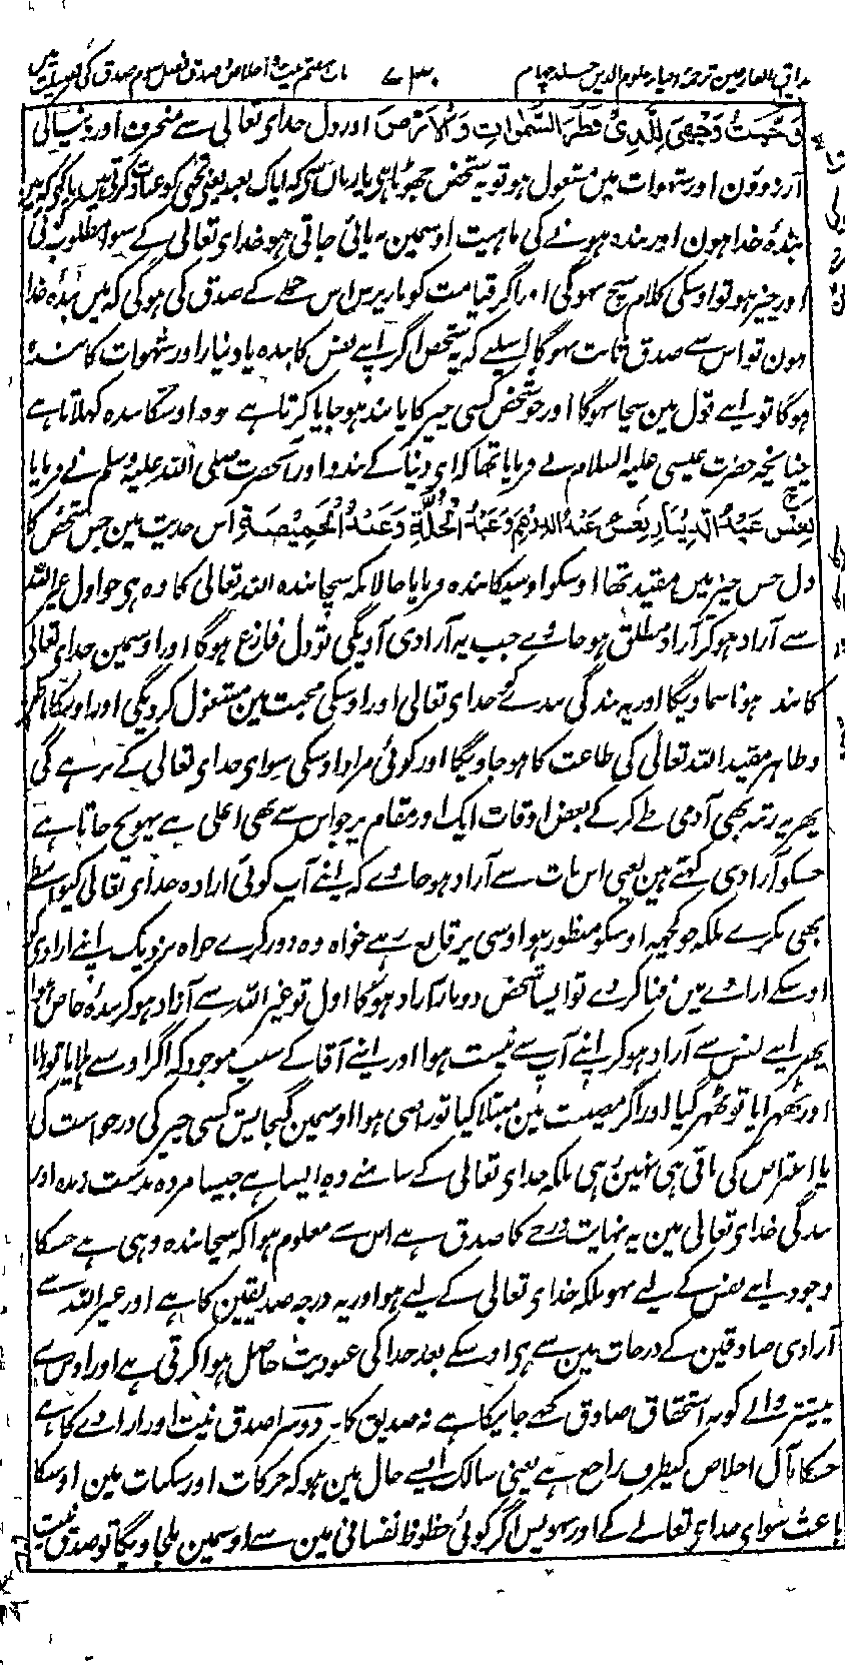 مذاق العارفین ترجمہ احیاء علوم الدین جلد چہارم ۷۳۰ باب ہفتم نیت و اخلاص و صدق فصل سوم صدق کی فضیلت میں
وَجَّهْتُ وَجْهِيَ لِلَّذِي فَطَرَ السَّمٰوَاتِ وَالْاَرْضَ اور دل خدای تعالی سے منحرف اور دنیا کی
آرزوون اور شہوات مین مشغول ہو تو یہ شخص جھوٹا ہی یا زبان سی کہ ایاک نعبد یعنی تجھی کو عبادت کرتی ہیں یا کہی کہ مین
بندۂ خدا ہون اور بندہ ہونے کی ماہیت اوسمین نہ پائی جاتی ہو خدای تعالی کے سوا مطلوب کوئی
اور چیز ہو تو اوسکی کلام سچ نہوگی اور اگر قیامت کو بازپرس اس جملے کے صدق کی ہوگی کہ میں بندۂ خدا
ہون تو اس سے صدق ثابت نہوگا اسلیے کہ یہ شخص اگر اپنے نفس کا بندہ یا دنیا اور شہوات کا بندہ
ہوگا تو اپنے قول مین سچا نہوگا اور جو شخص کسی چیز کا پابند ہو جایا کرتا ہے وہ اوسیکا بندہ کہلاتا ہے
چنانچہ حضرت عیسی علیہ السلام نے فرمایا تھا کہ ای دنیا کے بندو اور آنحضرت صلی اللہ علیہ وسلم نے فرمایا
تَعِسَ عَبْدُ الدِّينَارِ تَعِسَ عَبْدُ الدِّرْهَمِ وَعَبْدُ الْحُلَّةِ وَعَبْدُ الْخَمِيْصَةِ اس حدیث مین جس شخص کا
دل جس چیز میں مقید تھا اوسکو اوسیکا بندہ فرمایا حالانکہ سچا بندہ اللہ تعالی کا وہ ہی جو اول غیر اللہ
سے آزاد ہو کر آزاد مطلق ہو جاوے جب یہ آزادی آویگی تو دل فارغ ہوگا اور اوسمین خدای تعالی
کا بندہ ہونا سماویگا اور یہ بندگی بندے کو خدای تعالی اور اوسکی محبت مین مشغول کردیگی اور اوسکا باطن
و ظاہر مقید اللہ تعالی کی طاعت کا ہو جاویگا اور کوئی مراد اوسکی سوای خدای تعالی کے نرہے گی
پھر یہ رتبہ بھی آدمی طے کر کے بعض اوقات ایک اور مقام پر جو اس سے بھی اعلی ہے پہونچ جاتا ہے
جسکو آزادی کہتے ہین یعنی اس بات سے آزاد ہو جاوے کہ اپنے آپ کوئی ارادہ خدای تعالی کیواسطے
بھی نکرے بلکہ جو کچھ اوسکو منظور ہو اوسی پر قانع رہے خواہ وہ دور کرے خواہ نزدیک اپنے ارادی کو
اوسکے ارادے میں فنا کر دے تو ایسا شخص دوبارہ آزاد ہوگا اول تو غیر اللہ سے آزاد ہو کر بندۂ خاص ہوا
پھر اپنے نفس سے آزاد ہو کر اپنے آپ سے نیست ہوا اور اپنے آقا کے سبب موجود کہ اگر اوسے ہلایا تو ہلا
اور ٹھہرایا تو ٹھہر گیا اور اگر مصیبت مین مبتلا کیا تو راضی ہوا اوسمین گنجایش کسی چیز کی درخواست کی
یا اعتراض کی باقی ہی نہین رہی بلکہ خدای تعالی کے سامنے وہ ایسا ہے جیسا مردہ بدست زندہ اور
بندگی خدای تعالی مین یہ نہایت درجے کا صدق ہے اس سے معلوم ہوا کہ سچا بندہ وہی ہے جسکا
وجود اپنے نفس کے لیے نہو بلکہ خدای تعالی کے لیے ہو اور یہ درجہ صدیقین کا ہے اور غیر اللہ سے
آزادی صادقین کے درجات مین سے ہی اوسکے بعد خدا کی عبودیت حاصل ہوا کرتی ہے اور اوس سے
پیشتر والے کو نہ استحقاق صادق کہے جانیکا ہے نہ صدیق کا۔ دوسرا صدق نیت اور ارادے کا ہے
جسکا مآل اخلاص کیطرف راجع ہے یعنی سالک ایسے حال مین ہو کہ حرکات اور سکنات مین اوسکا
باعث سوای خدای تعالے کے اور نہو پس اگر کوئی حظوظ نفسانی مین سے اوسمین ملجاویگا تو صدق نیت